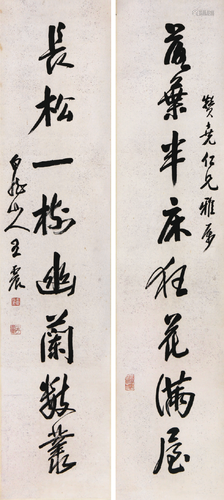 贊堯仁兄雅屬
落葉半床狂花滿屋
長松一樹幽蘭數叢
白龍山人王震